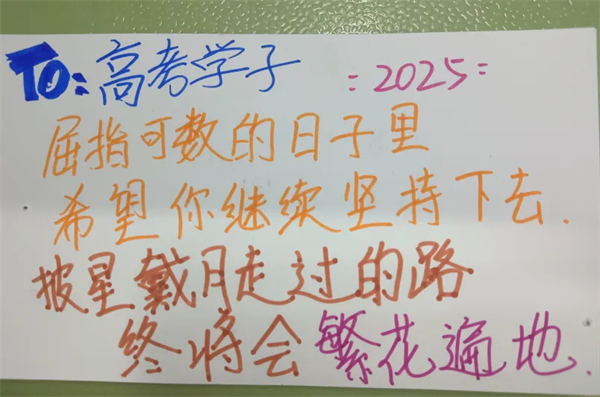 TO:高考学子 :2025:
屈指可数的日子里
希望你继续坚持下去.
披星戴月走过的路
终将会繁花遍地.